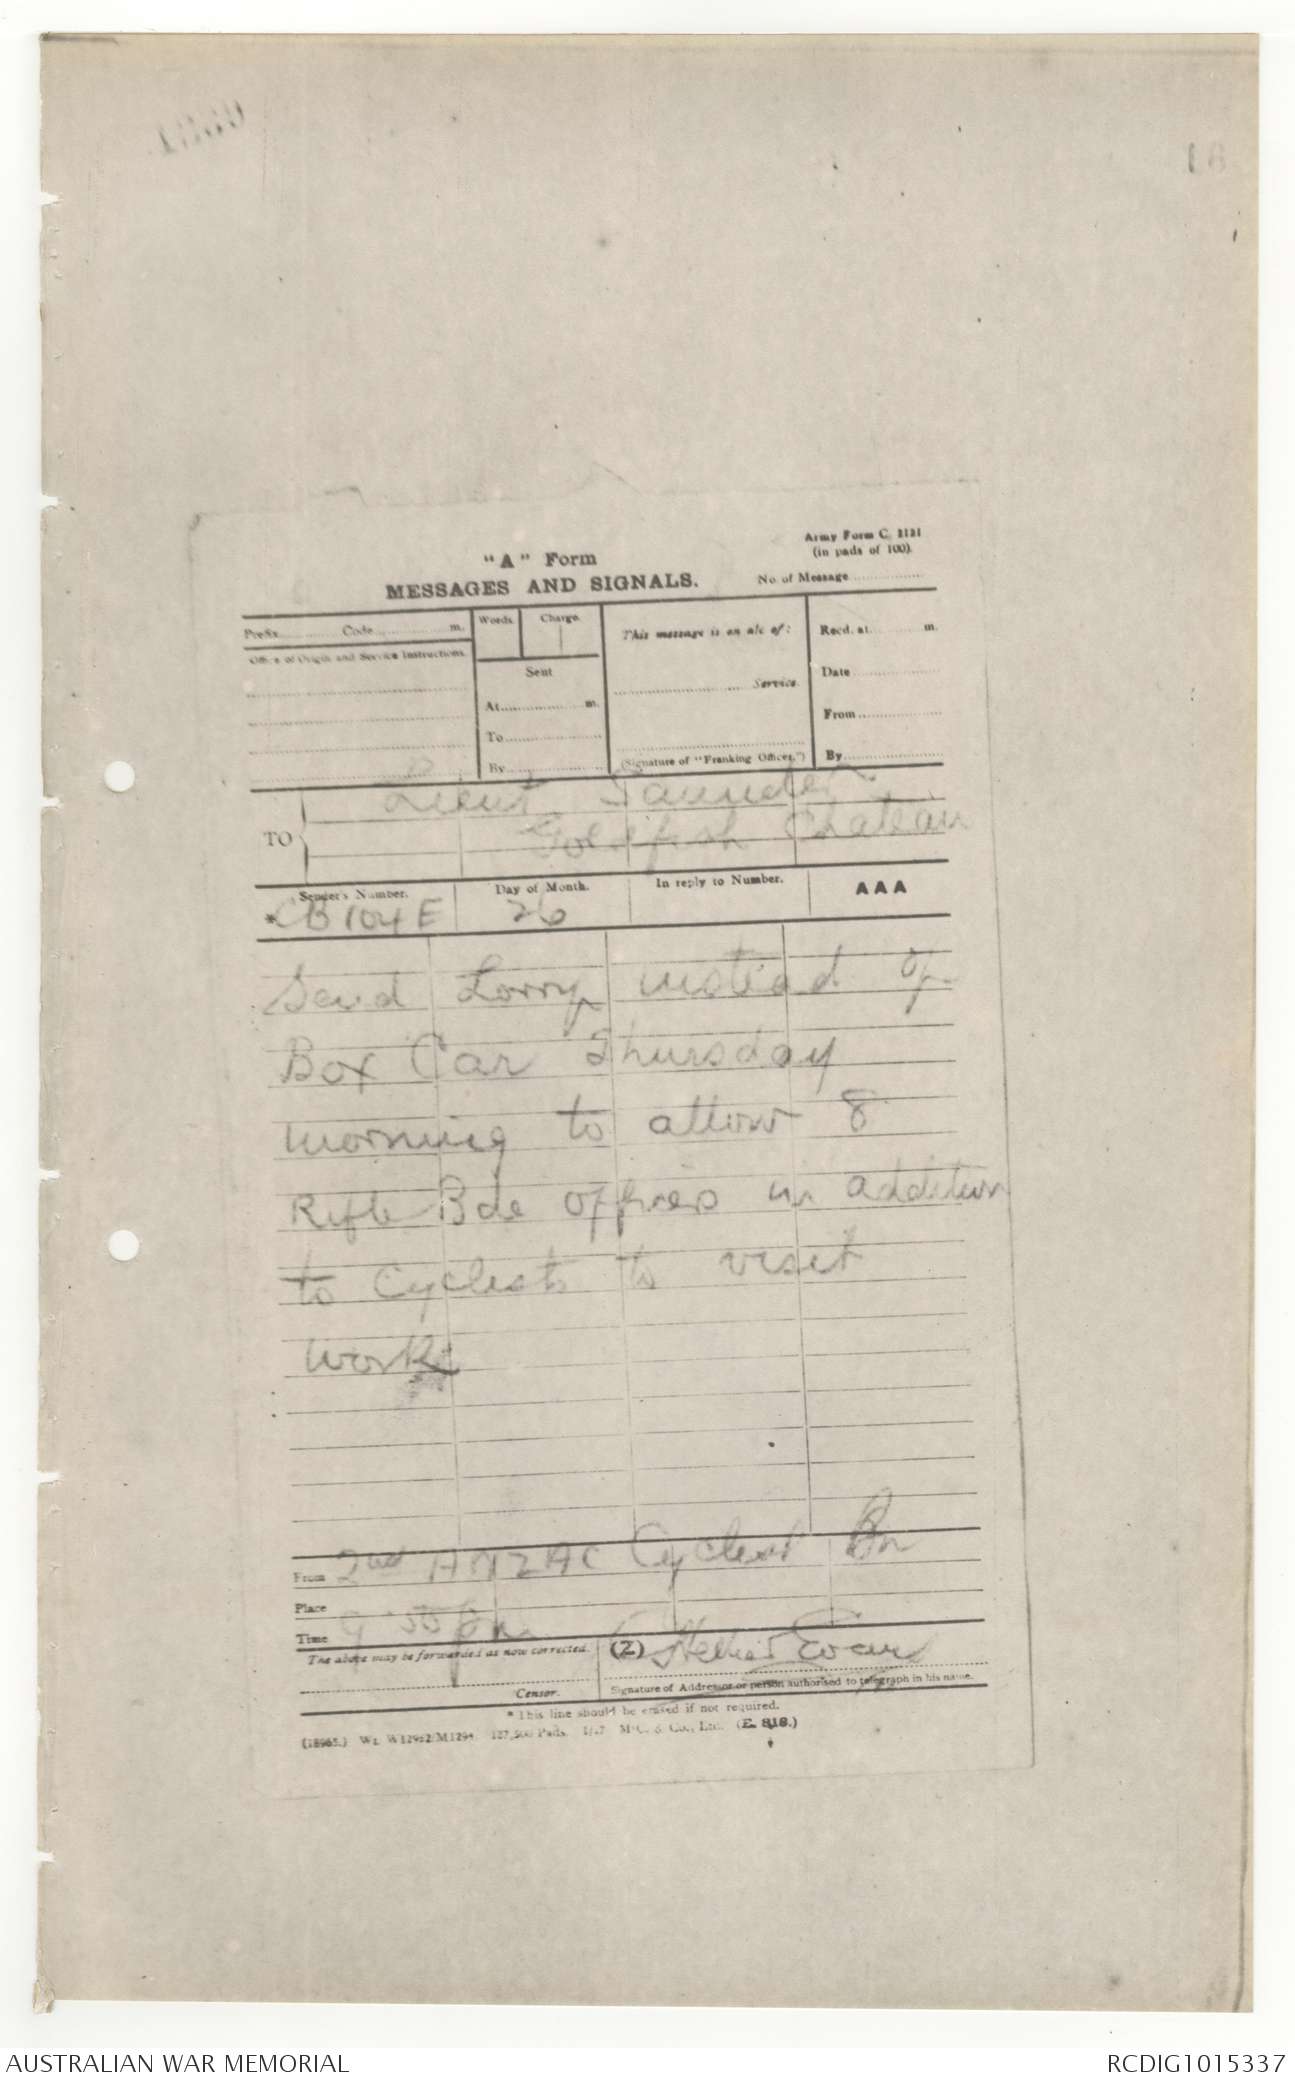 16
"A" Form
Army Form C. 2121
(in pads of 100).
MESSAGES AND SIGNALS.
No. of Message
Prefix Code m.
Words. Charge.
This message is on a/c of:
Recd. at m.
Office of Origin and Service Instructions.
Sent
Service.
Date
At m.
From
To
(Signature of "Franking Officer.")
By
By
TO
Lieut. Saunders
Goldfish Chateau
Sender's Number. Day of Month. In reply to Number. AAA
* CB104E 26
Send Lorry instead of
Box Car Thursday
morning to allow 8
Rifle Bde officers in addition
to Cyclists to visit
work
From 2nd ANZAC Cyclist Bn
Place
Time 9.55 pm
The above may be forwarded as now corrected. (Z) Evans
Censor. Signature of Addressor or person authorised to telegraph in his name.
* This line should be erased if not required.
(18965.) Wt. W12952/M1294. 127,500 Pads. 1/17 McC. & Co., Ltd. (E. 818.)
AUSTRALIAN WAR MEMORIAL
RCDIG1015337